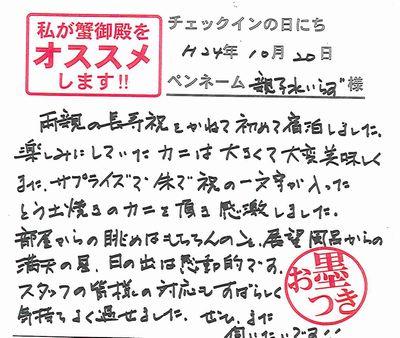 私が蟹御殿を
オススメ
します!!
チェックインの日にち
H24年 10月 20日
ペンネーム 親子水いらず 様
両親の長寿祝をかねて初めて宿泊しました。
楽しみにしていたカニは大きくて大変美味しく
また、サプライズで朱で祝の一文字が入った
とう土焼きのカニを頂き感激しました。
部屋からの眺めはもちろんのこと、展望風呂からの
満天の星、日の出は感動的です。
スタッフの皆様の対応もすばらしく
気持ちよく過せました。ぜひ、また
伺いたいです!!
お墨つき